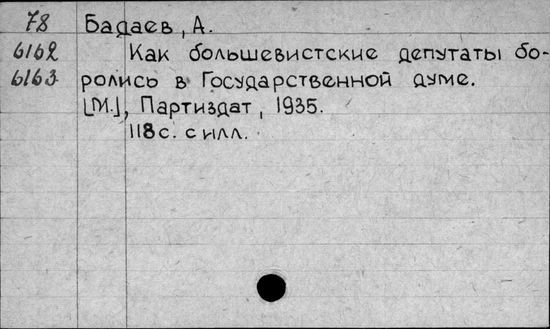 78 Бадаев, А.
6162 Как большевистские депутаты бо-
6163 ролись в Государственной думе.
[М.], Партиздат, 1935.
118с. с илл.